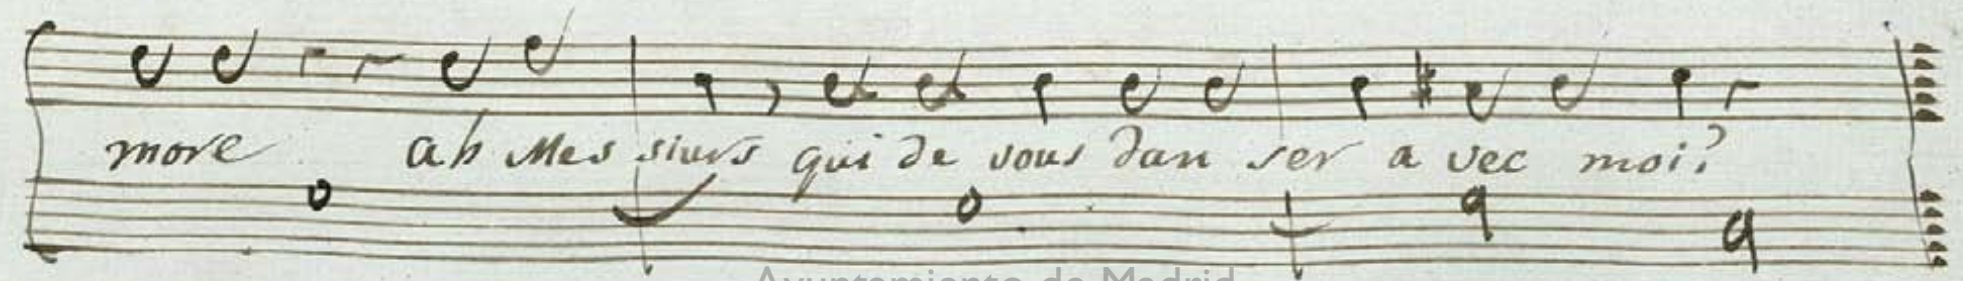 more ah Mes siurs qui de vous dan ser a vec moi?
Ayuntamiento de Madrid